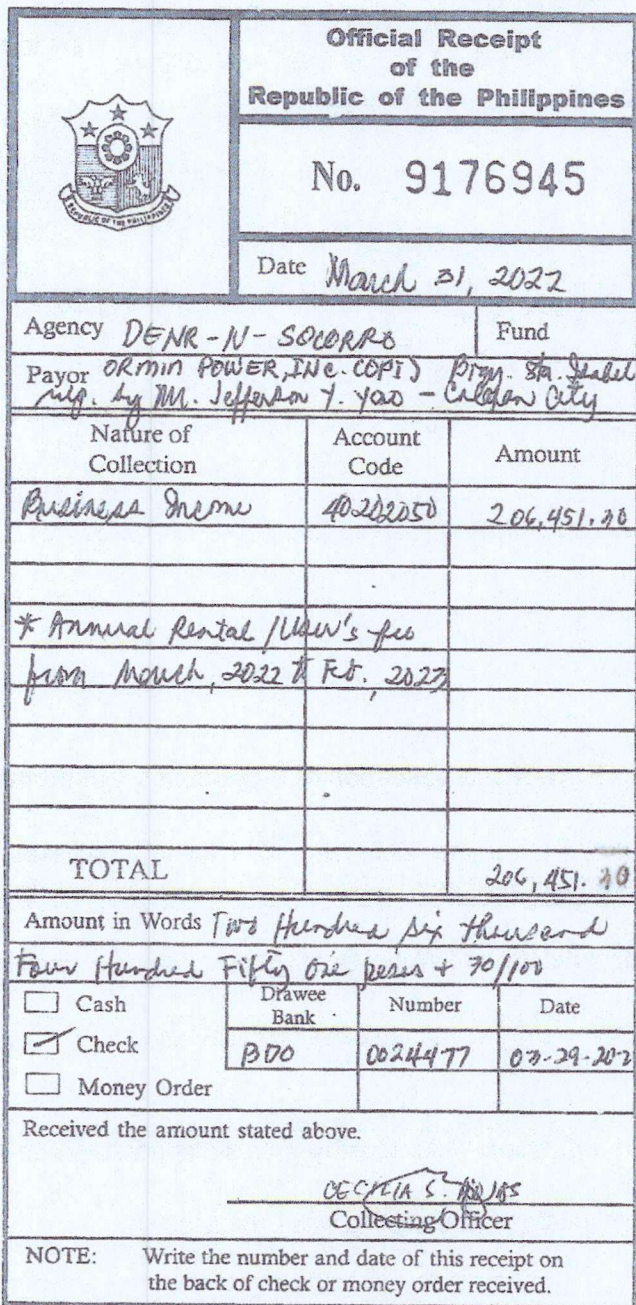 Official Receipt
of the
Republic of the Philippines
REPUBLIC OF THE PHILIPPINES
No. 9176945
Date March 31, 2022
Agency DENR-IV-SOCORRO Fund
Payor ORMIN POWER, INC. (OPI) Brgy. Sta. Isabel
by Mr. Jefferson Y. Yao - Calapan City
Nature of Collection Account Code Amount
Business Income 40202050 206,451.30
* Annual Rental / User's fee
from March, 2022 to Feb., 2023
TOTAL 206,451.30
Amount in Words Two Hundred six thousand
Four Hundred Fifty one pesos + 30/100
Cash Drawee Bank Number Date
Check BDO 0024477 03-29-202
Money Order
Received the amount stated above.
CECILIA S.
Collecting Officer
NOTE: Write the number and date of this receipt on
the back of check or money order received.